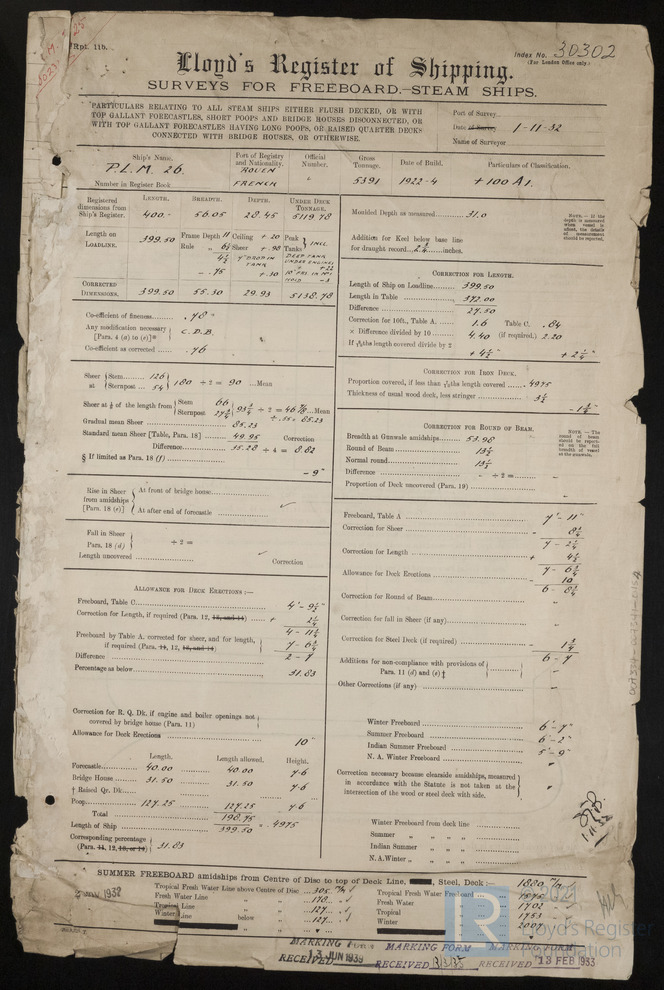 Rpt. 11b.
Index No. 30302
(For London Office only.)
Lloyd's Register of Shipping.
SURVEYS FOR FREEBOARD.—STEAM SHIPS.
PARTICULARS RELATING TO ALL STEAM SHIPS EITHER FLUSH DECKED, OR WITH
TOP GALLANT FORECASTLES, SHORT POOPS AND BRIDGE HOUSES DISCONNECTED, OR
WITH TOP GALLANT FORECASTLES HAVING LONG POOPS, OR RAISED QUARTER DECKS
CONNECTED WITH BRIDGE HOUSES, OR OTHERWISE.
Port of Survey
Date of Survey 1-11-32
Name of Surveyor
Ship's Name. Port of Registry and Nationality. Official Number. Gross Tonnage. Date of Build. Particulars of Classification.
P.L.M. 26. ROUEN FRENCH 5391 1922-4 +100A1.
Number in Register Book
Registered dimensions from Ship's Register. LENGTH. 400.- BREADTH. 56.05 DEPTH. 28.45 UNDER DECK TONNAGE. 5119.78
Length on LOADLINE. 399.50 Frame Depth 11 Ceiling + .20 Peak Tanks } INCL
Rule „ 6½ Sheer + .98
4½ 4" DROP IN TANK DEEP TANK UNDER ENGINES + 22
- .75 + .30 10" FRS IN No 1 HOLD - 3
CORRECTED DIMENSIONS. 399.50 55.30 29.93 5138.78
Co-efficient of fineness .78
Any modification necessary [Para. 4 (a) to (e)]* C.D.B.
Co-efficient as corrected .76
Sheer at { Stem 126 Sternpost 54 } 180 ÷ 2 = 90 Mean
Sheer at ⅛ of the length from { Stem 66 Sternpost 27¾ } 93¾ ÷ 2 = 46⅞ Mean
÷ .55 = 85.23
Gradual mean Sheer 85.23
Standard mean Sheer [Table, Para. 18] 49.95 Correction
Difference 35.28 ÷ 4 = 8.82
§ If limited as Para. 18 (f)
- 9"
Rise in Sheer from amidships [Para. 18 (e)] { At front of bridge house
At after end of forecastle
Fall in Sheer Para. 18 (d) } ÷ 2 =
Length uncovered Correction
ALLOWANCE FOR DECK ERECTIONS :—
Freeboard, Table C 4' - 9¼"
Correction for Length, if required (Para. 12, 13, and 14) + 2¼
4 - 11½
Freeboard by Table A. corrected for sheer, and for length, if required (Para. 11, 12, 13, and 14) 7 - 6¾
Difference 2 - 7
Percentage as below 31.83
Correction for R. Q. Dk. if engine and boiler openings not covered by bridge house (Para. 11)
Allowance for Deck Erections 10"
Length. Length allowed. Height.
Forecastle 40.00 40.00 7.6
Bridge House 31.50 31.50 7.6
† Raised Qr. Dk.
Poop 127.25 127.25 7.6
Total 198.75
Length of Ship 399.50 = .4975
Corresponding percentage (Para. 11, 12, 13, or 14) } 31.83
Moulded Depth as measured 31.0
Addition for Keel below base line for draught record 2¾ inches.
NOTE.—If the depth is measured when vessel is afloat, the details of measurement should be reported.
CORRECTION FOR LENGTH.
Length of Ship on Loadline 399.50
Length in Table 372.00
Difference 27.50
Correction for 10ft., Table A. 1.6 Table C. .84
× Difference divided by 10 4.40 (if required.) 2.20
If 6/10ths length covered divide by 2
+ 4½" + 2¼"
CORRECTION FOR IRON DECK.
Proportion covered, if less than 7/10ths length covered .4975
Thickness of usual wood deck, less stringer 3½
- 1¾"
CORRECTION FOR ROUND OF BEAM.
Breadth at Gunwale amidships 53.98
Round of Beam 13½
Normal round 13½
Difference - ÷ 2 =
Proportion of Deck uncovered (Para. 19)
NOTE.—The round of beam should be reported on the full breadth of vessel at the gunwale.
Freeboard, Table A 7' - 11"
Correction for Sheer - 8¾
7 - 2¼
Correction for Length + 4½
7 - 6¾
Allowance for Deck Erections - 10
6 - 8¾
Correction for Round of Beam
Correction for fall in Sheer (if any)
Correction for Steel Deck (if required) - 1¾
6 - 7
Additions for non-compliance with provisions of Para. 11 (d) and (e) ‡
Other Corrections (if any)
Winter Freeboard 6' - 7"
Summer Freeboard 6' - 2"
Indian Summer Freeboard 5' - 9"
N. A. Winter Freeboard
Correction necessary because clearside amidships, measured in accordance with the Statute is not taken at the intersection of the wood or steel deck with side.
Winter Freeboard from deck line
Summer „ „ „ „
Indian Summer „ „ „
N.A. Winter „ „ „ „
1.11.32
SUMMER FREEBOARD amidships from Centre of Disc to top of Deck Line, Steel, Deck:— 1880 m/m
Tropical Fresh Water Line above Centre of Disc 305 m/m Tropical Fresh Water Line Freeboard 1575
Fresh Water Line „ „ 178 Fresh Water „ 1702
Tropical Line „ „ 127 Tropical „ 1753
Winter Line below „ 127 Winter „ 2007
MARKING FORM RECEIVED 13 JUN 1939
MARKING FORM RECEIVED
MARKING FORM RECEIVED 13 FEB 1933
Lloyd's Register
Foundation